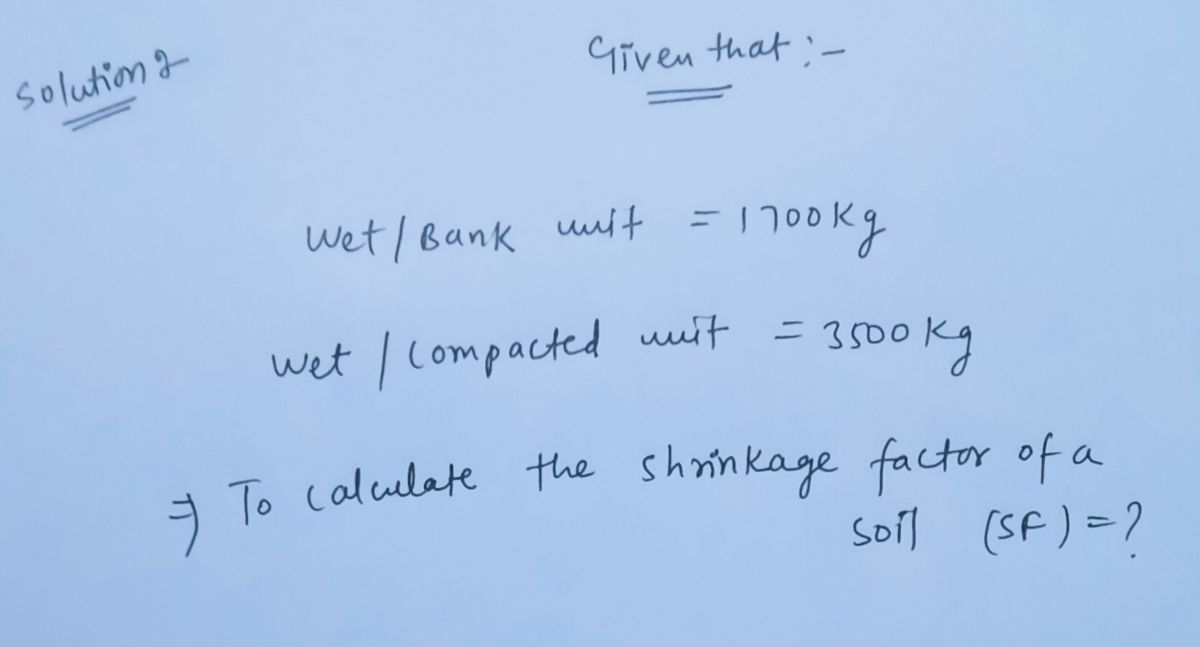 Solution:-
Given that :-
Wet / Bank unit = 1700 Kg
wet / compacted unit = 3500 Kg
⇒ To calculate the shrinkage factor of a
soil (SF) = ?